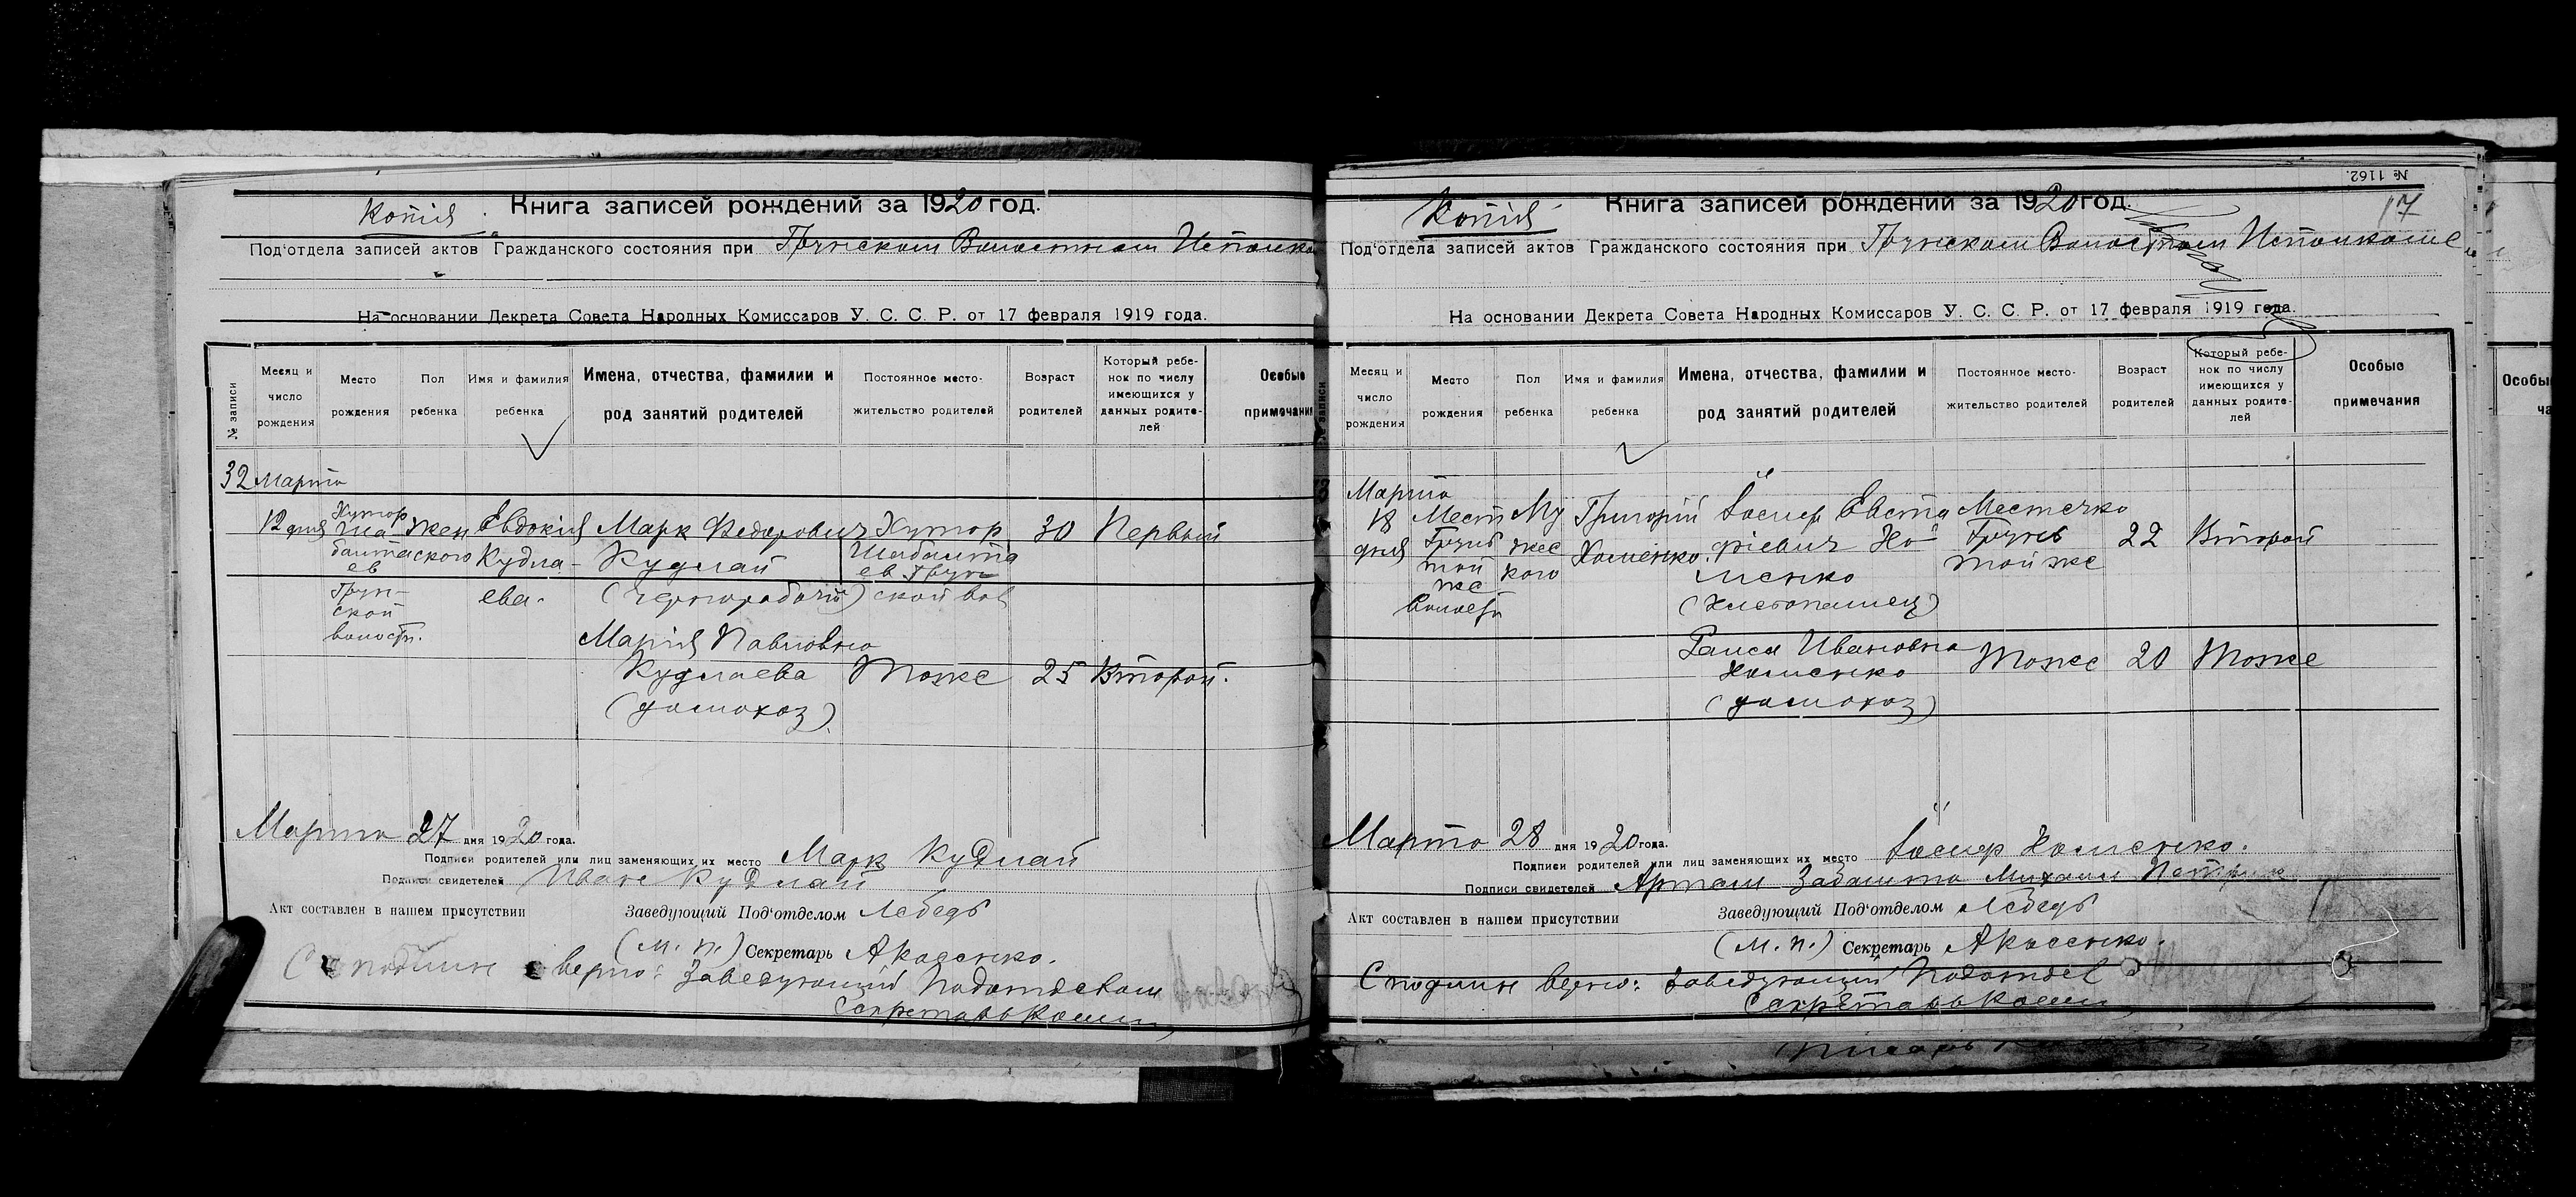 Копия. Книга записей рождений за 1920 год.
Под'отдела записей актов Гражданского состояния при Грунском Волостном Исполко
На основании Декрета Совета Народных Комиссаров У. С. С. Р. от 17 февраля 1919 года.
№ записи
Месяц и число рождения
Место рождения
Пол ребенка
Имя и фамилия ребенка
Имена, отчества, фамилии и род занятий родителей
Постоянное место-жительство родителей
Возраст родителей
Который ребе-нок по числу имеющихся у данных родите-лей
Особые примечания
32 Марта
12 дня
Хутор
Ша-
балта
ев
Грун-
ской
волости.
Жен
ского
Евдокия
Кудла-
ева.
Марк Федорович
Кудлай
(чернорабочий)
Хутор
Шабалта
ев Грун
ской вол
30
Первый
Мария Павловна
Кудлаева
(домохоз).
Тоже
25
Второй.
Марта 27 дня 1920 года.
Подписи родителей или лиц заменяющих их место Марк Кудлай
Подписи свидетелей Иван Кудлай
Акт составлен в нашем присутствии Заведующий Под'отделом Лебедь
(м. п.) Секретарь
С подлин верно: Заведующий Подотделом
Секретарь
№ 1162.
17
Копия Книга записей рождений за 1920 год.
Под'отдела записей актов Гражданского состояния при Грунском Волостном Исполкоме
На основании Декрета Совета Народных Комиссаров У. С. С. Р. от 17 февраля 1919 года.
№ записи
Месяц и число рождения
Место рождения
Пол ребенка
Имя и фамилия ребенка
Имена, отчества, фамилии и род занятий родителей
Постоянное место-жительство родителей
Возраст родителей
Который ребе-нок по числу имеющихся у данных родите-лей
Особые примечания
Марта
18
дня
Мест
Грунь
той
же
волости
Му
жес
кого
Григорий
Хоменко.
Евста
фиевич Хо
менко
(хлебопашец)
Местечко
Грунь
той же
22
Второй
Раиса Ивановна
Хоменко
(домохоз)
Тоже
20
Тоже
Марта 28 дня 1920 года.
Подписи родителей или лиц заменяющих их место Хоменко.
Подписи свидетелей Артем Михаил
Акт составлен в нашем присутствии Заведующий Под'отделом Лебедь
(м. п.) Секретарь
С подлин верно: Заведующий Подотдел
Секретарь